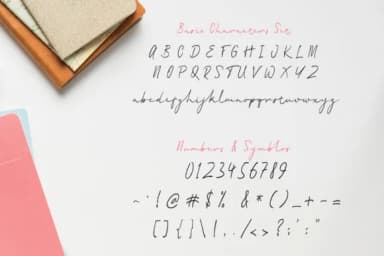 Basic Characters Set
A B C D E F G H I J K L M
N O P Q R S T U V W X Y Z
abcdefghijklmnopqrstuvwxyz
Numbers & Symbols
0123456789
~`!@#$% &*()_+-=
[]{}\|,./<>?;':"